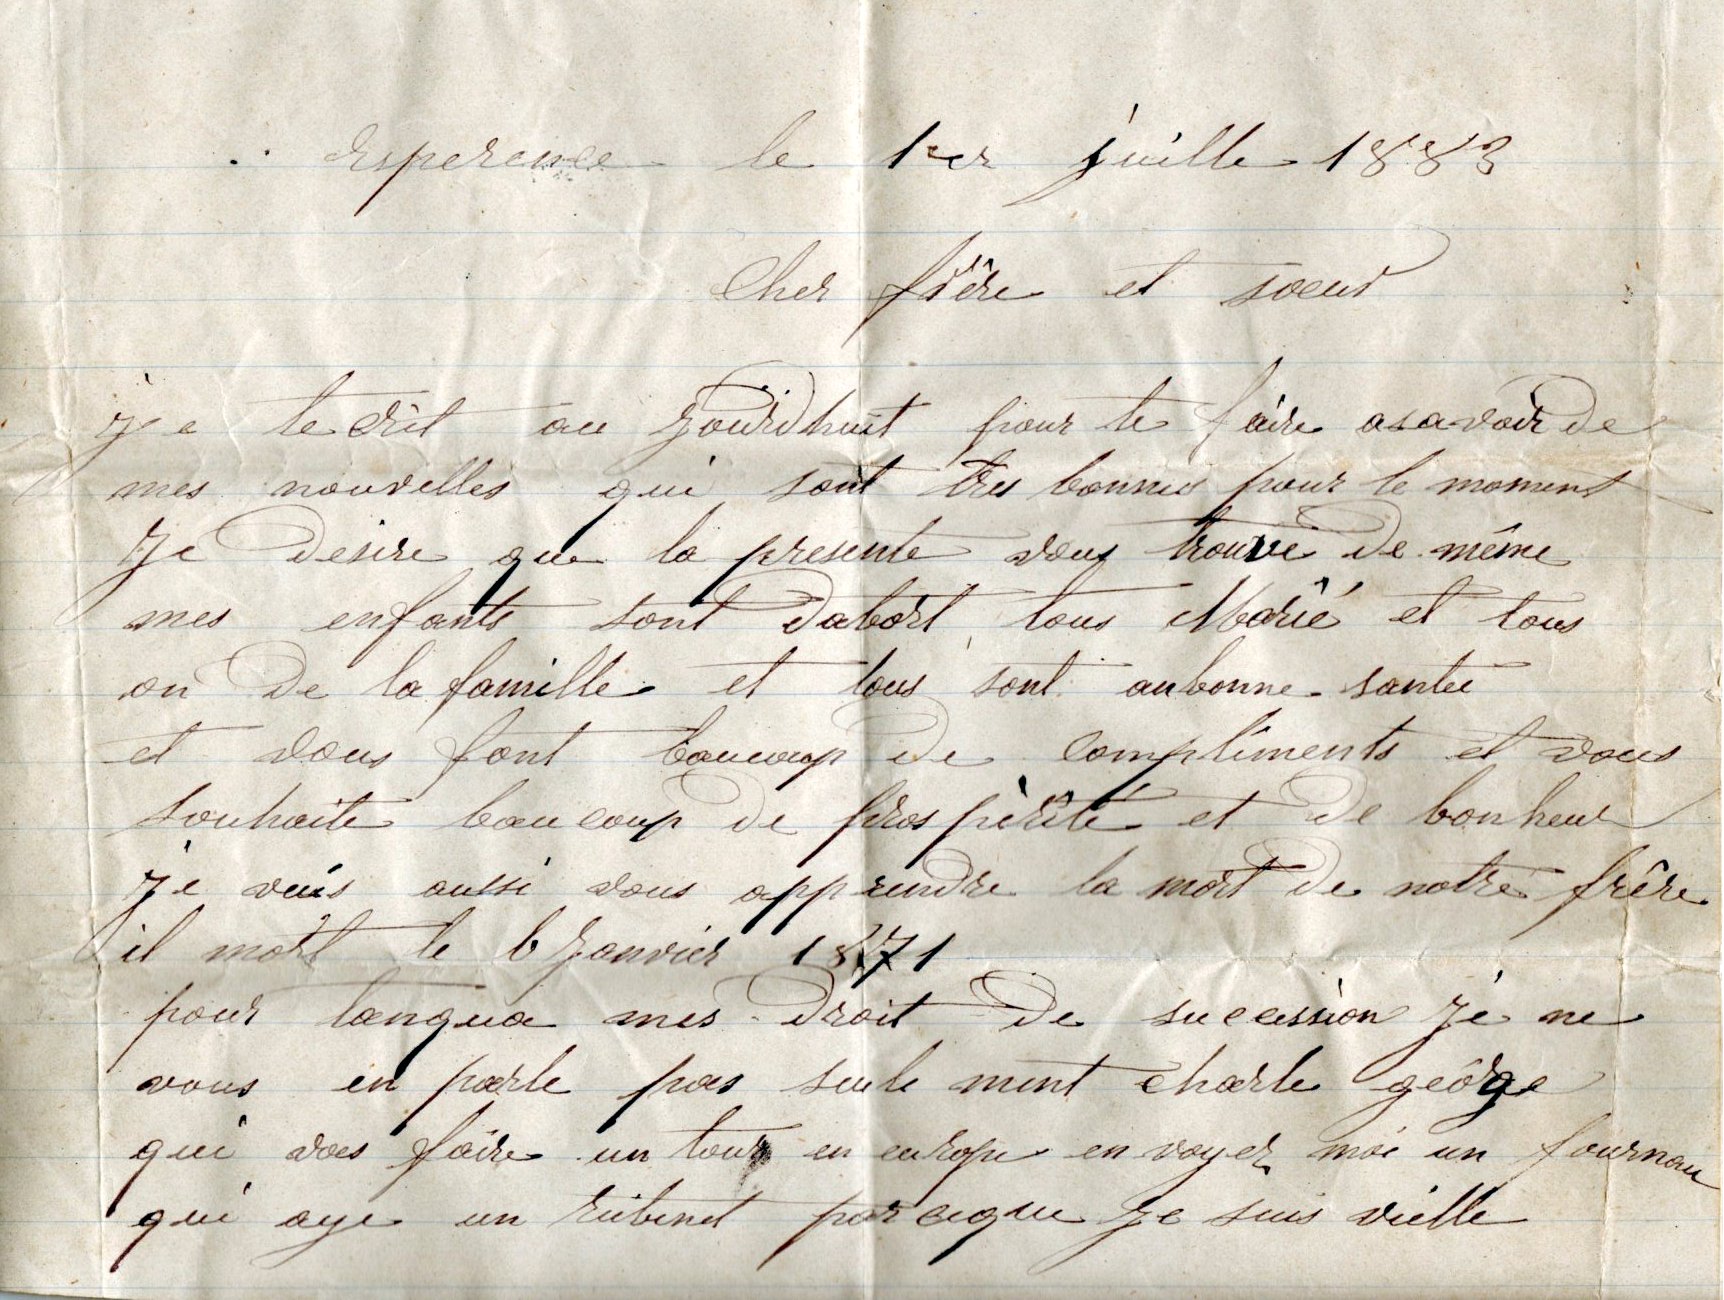 Esperence le 1er juille 1883
Cher frère et soeur
je tecrit au jourdhuit pour te faire asavoir de
mes nouvelles qui sont tres bonnes pour le moment
Je desire que la presente vous trouve de même
mes enfants sont dabort tous Marié et tous
on de la famille et tous sont aubonne santée
et vous font baucoup de compliments et vous
souhaite baucoup de prospèrité et de bonheur
je vais aussi vous apprendre la mort de notre frêre
il mort le 6 janvier 1871
pour tanqua mes droit de sucession je ne
vous en parle pas seule ment charle george
qui vas faire un tour en europe en voyez moi un fournau
qui aye un rubinet parceque je suis vielle